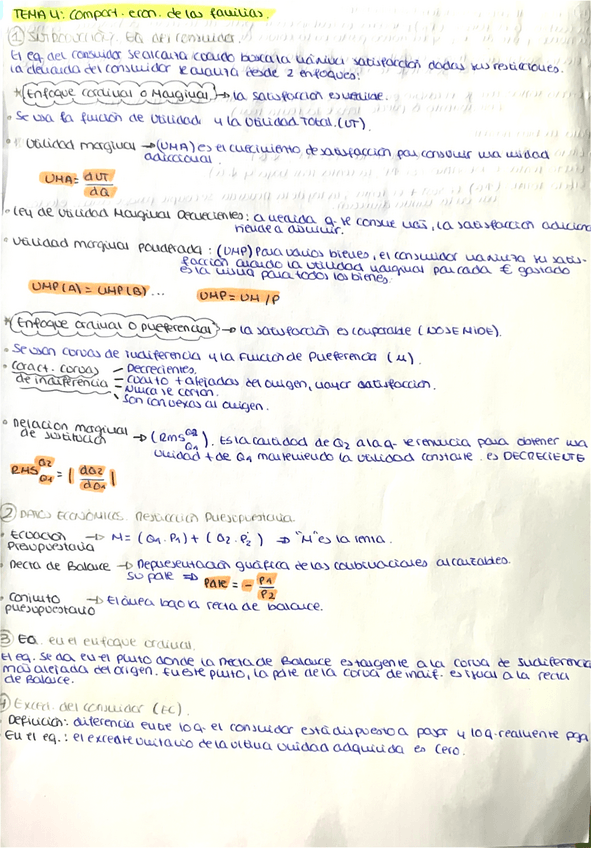 TEMA 4: Comport. econ. de las familias.
1 Eq. del consumidor.
El eq. del consumidor se alcanza cuando busca la máxima satisfacción dadas sus restricciones.
La demanda del consumidor se analiza desde 2 enfoques:
* Enfoque cardinal o Marginal → la satisfacción es medible.
• Se usa la función de utilidad y la Utilidad Total. (UT).
• Utilidad marginal → (UMA) es el crecimiento de satisfacción por consumir una unidad
adicional.
UMA = dUT / dQ
• Ley de Utilidad Marginal Decrecientes: a medida q. se consume más, la satisfacción adicional
tiende a disminuir.
• Utilidad marginal ponderada: (UMP) Para varios bienes, el consumidor maximiza su satis-
facción cuando la utilidad marginal por cada € gastado
es la misma para todos los bienes.
UMP(A) = UMP(B) ... UMP = UM / P
* Enfoque ordinal o preferencial → la satisfacción es comparable (NO SE MIDE).
• Se usan curvas de indiferencia y la Función de Preferencia (u).
• Caract. curvas de indiferencia = – Decrecientes.
– Cuanto + alejadas del origen, mayor satisfacción.
– Nunca se cortan.
– Son convexas al origen.
• Relación marginal
de sustitución → (RMS Q2 Q1). Es la cantidad de Q2 a la q. se renuncia para obtener una
unidad + de Q1 manteniendo la utilidad constante. es DECRECIENTE
RMS Q2 Q1 = | dQ2 / dQ1 |
2 DATOS ECONÓMICOS. Restricción Presupuestaria
• Ecuación
Presupuestaria → M = (Q1 · P1) + (Q2 · P2) → "M" es la renta.
• Recta de Balance → Representación gráfica de las combinaciones alcanzables.
su pdte ⇒ Pdte = - P1 / P2
• Conjunto
presupuestario → El área bajo la recta de balance.
3 EQ. en el enfoque ordinal.
El eq. se da en el punto donde la Recta de Balance es tangente a la curva de indiferencia
más alejada del origen. En este punto, la pdte de la curva de indif. es igual a la recta
de Balance.
4 Exced. del consumidor (EC).
• Definición: diferencia entre lo q. el consumidor está dispuesto a pagar y lo q. realmente paga
En el eq.: el excedente unitario de la última unidad adquirida es cero.